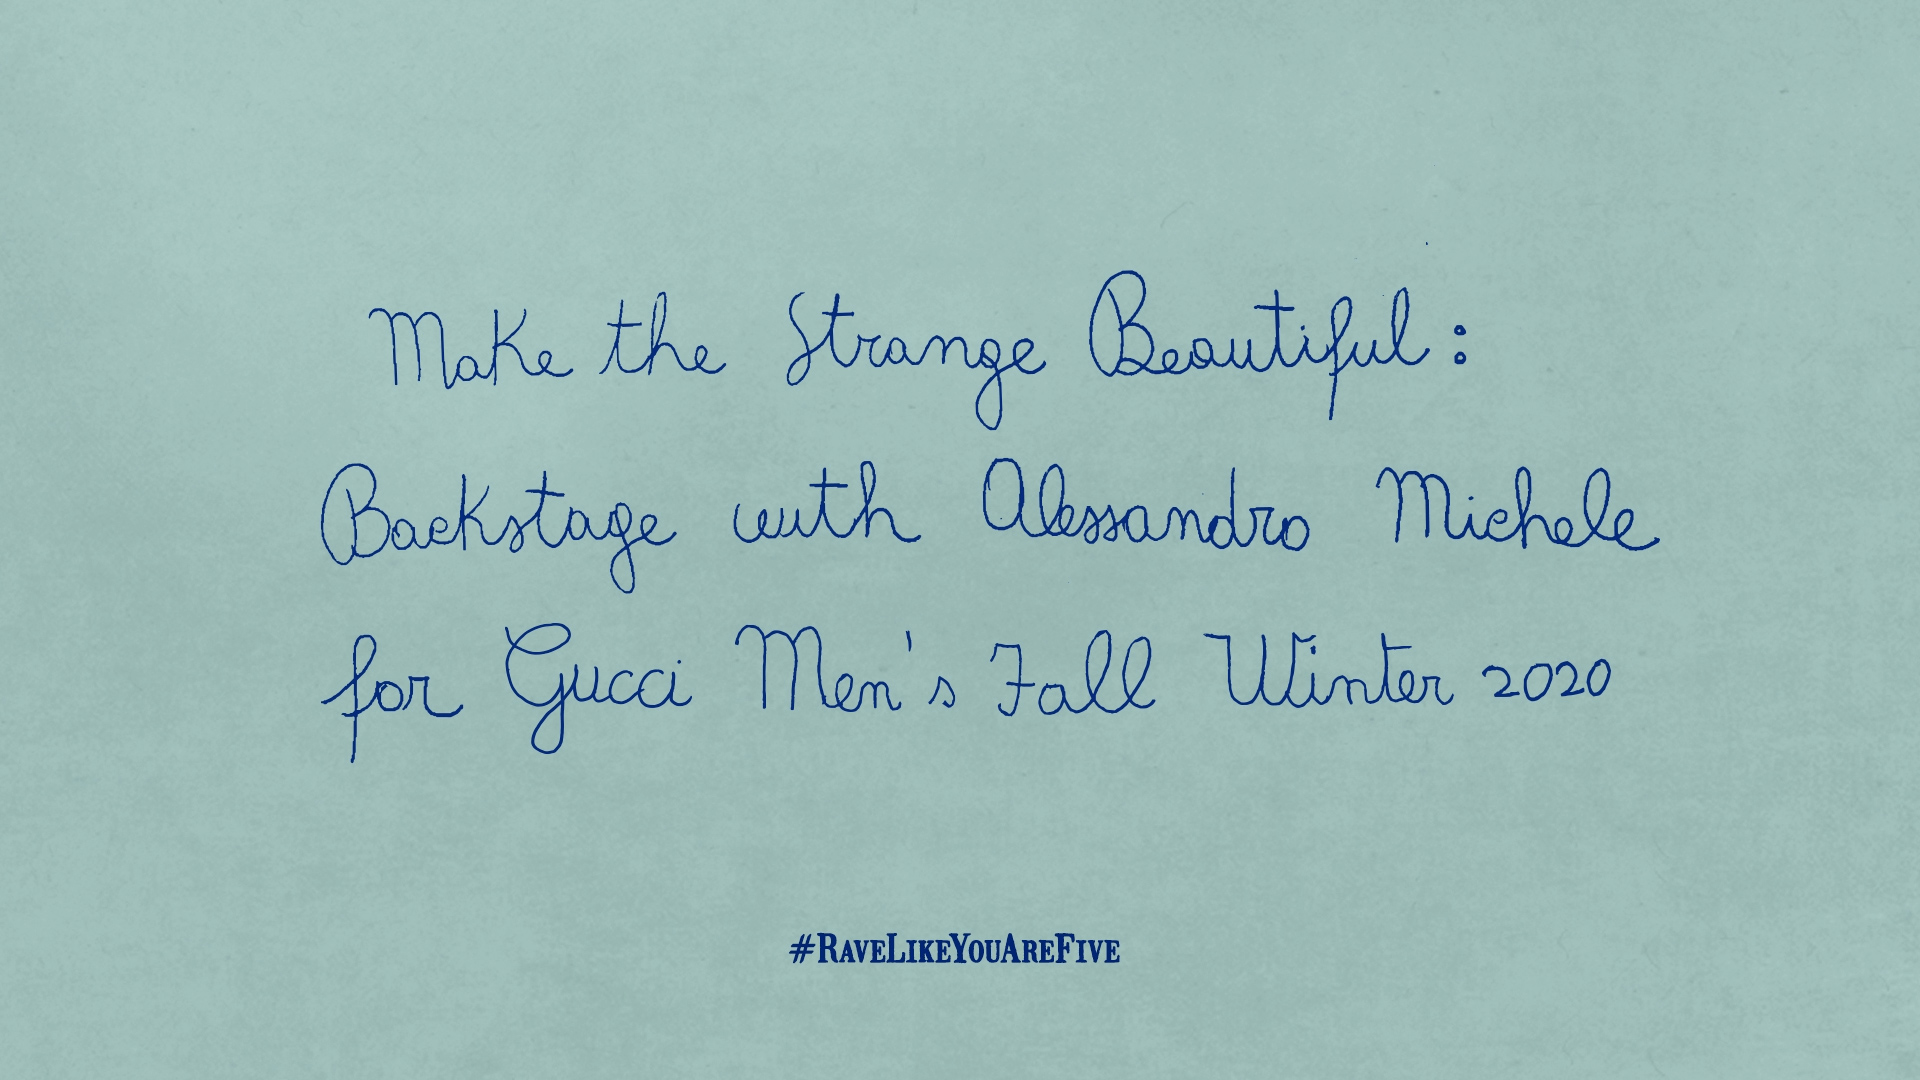 Make the Strange Beautiful:
Backstage with Alessandro Michele
for Gucci Men's Fall Winter 2020
#RaveLikeYouAreFive